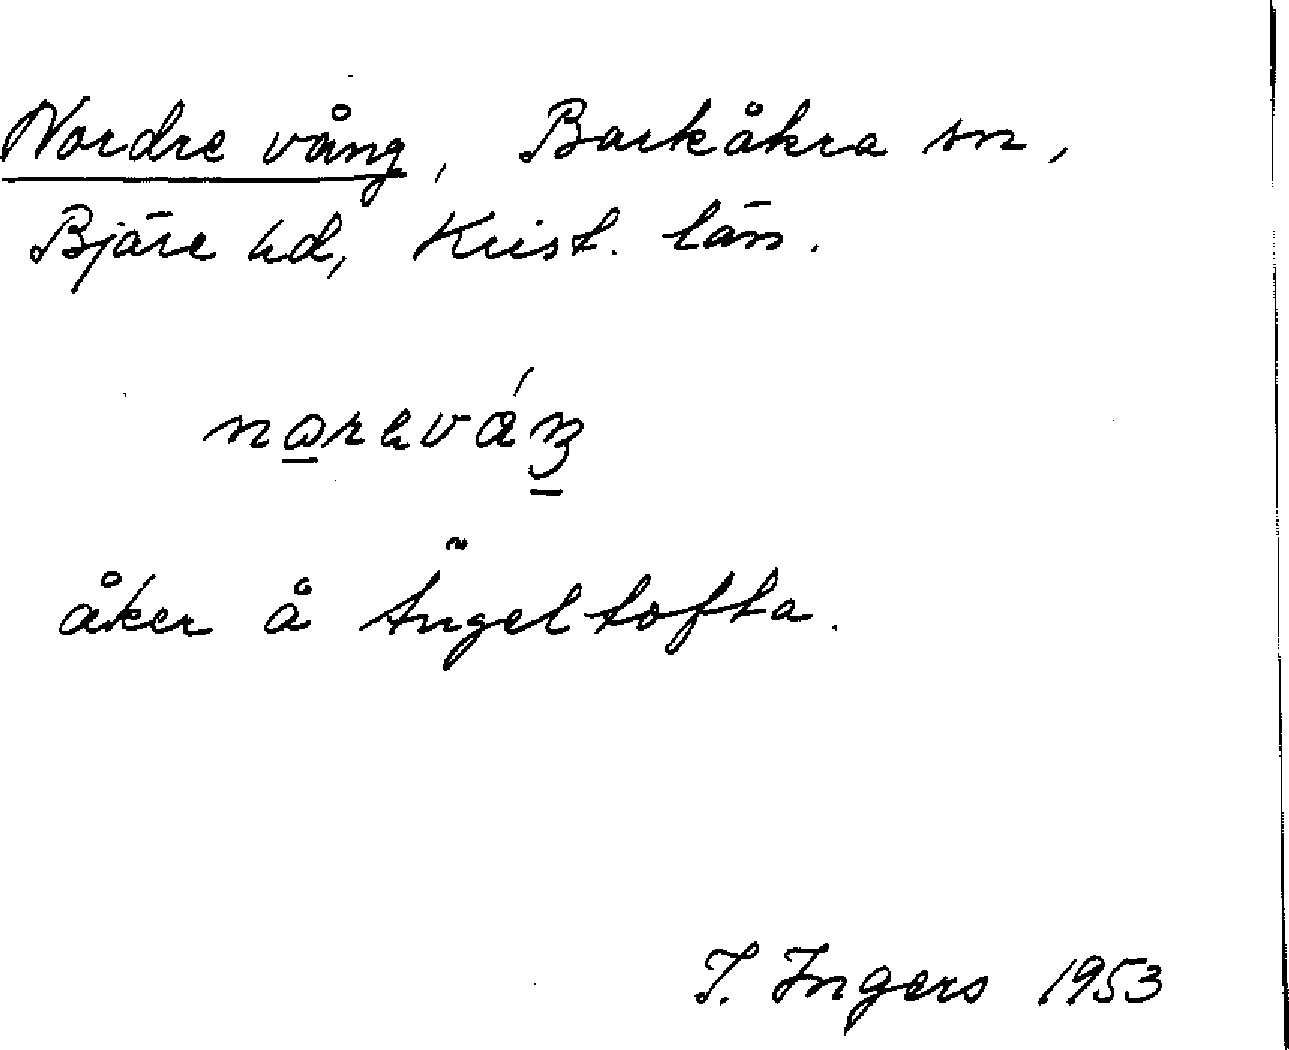 Nordre vång, Barkåkra sn,
Bjäre hd, Krist. län.
åker å Ängeltofta.
I. Ingers 1953